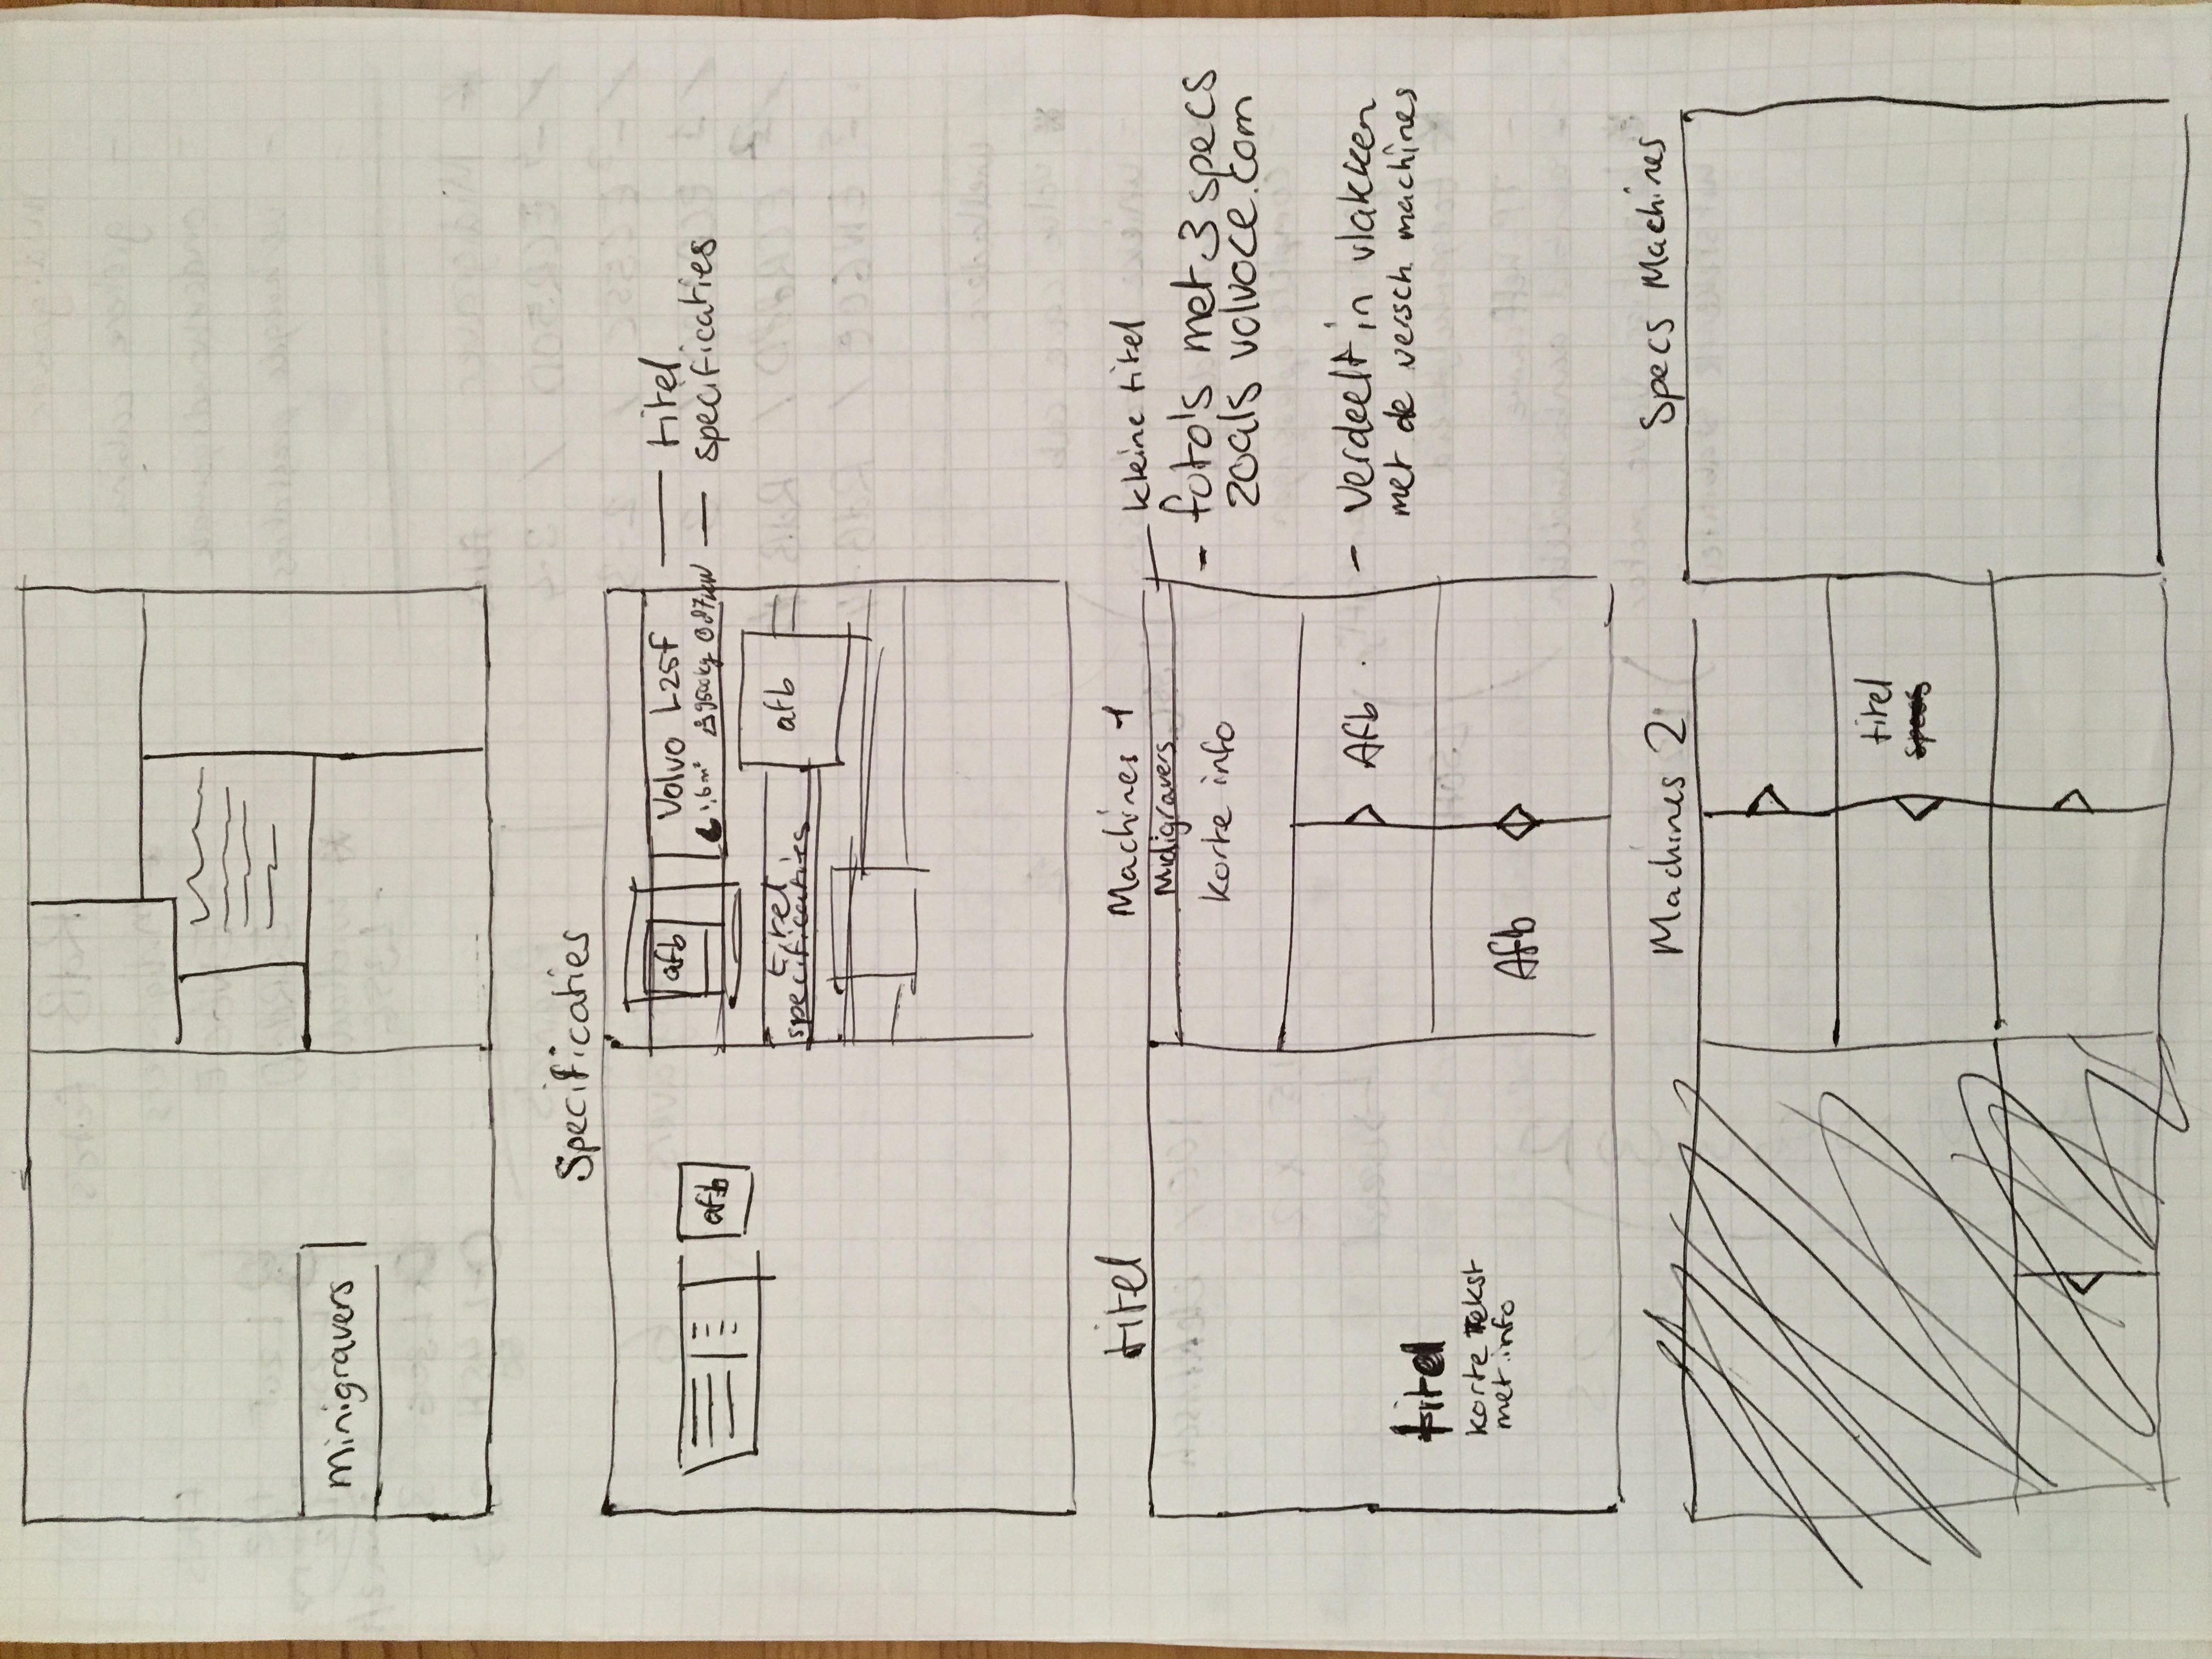 minigravers
Specificaties
afb
Volvo L-25F
titel
specificaties
afb
titel
specificaties
afb
titel
Machines 1
kleine titel
Midigravers
korte info
- foto's met 3 specs
zoals volvoce.com
Afb.
- Verdeelt in vlakken
met de versch machines
titel
korte Tekst
met info
Afb
Machines 2
Specs Machines
titel
specs